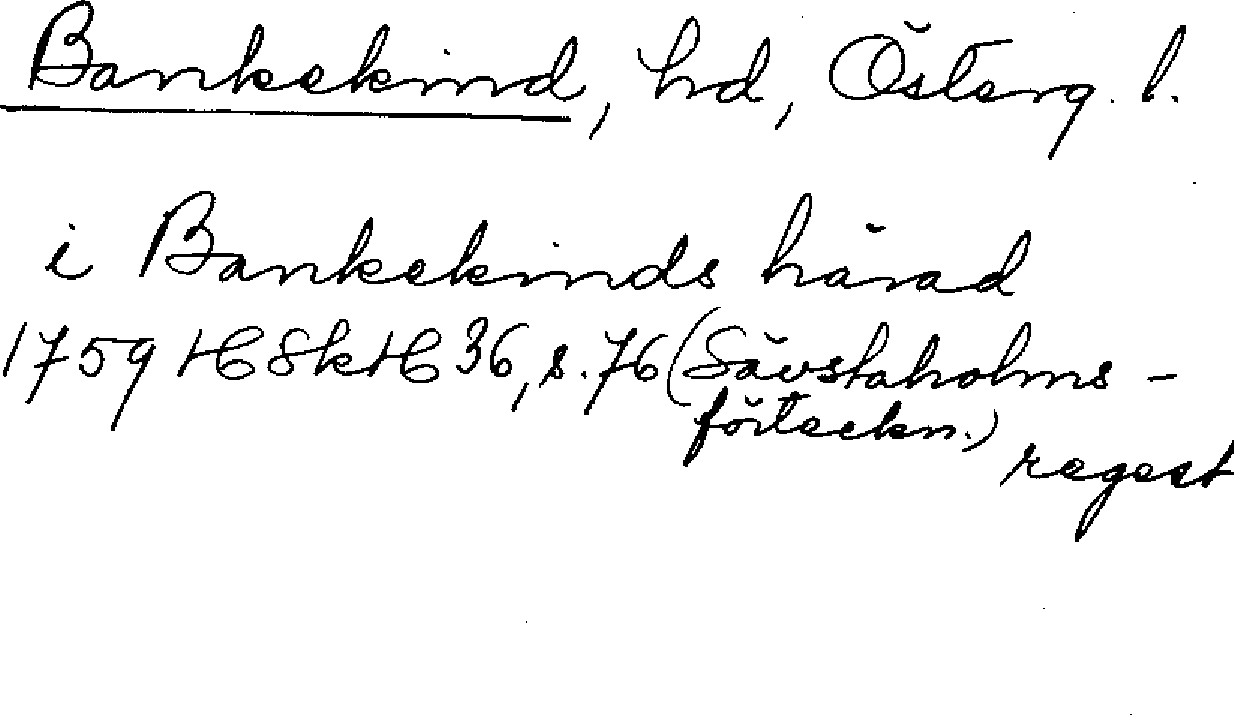 Bankekind, hd, Österg. l.
i Bankekinds härad
1759 HSkH 36, s. 76 (Sävstaholms-
förteckn.)
regest